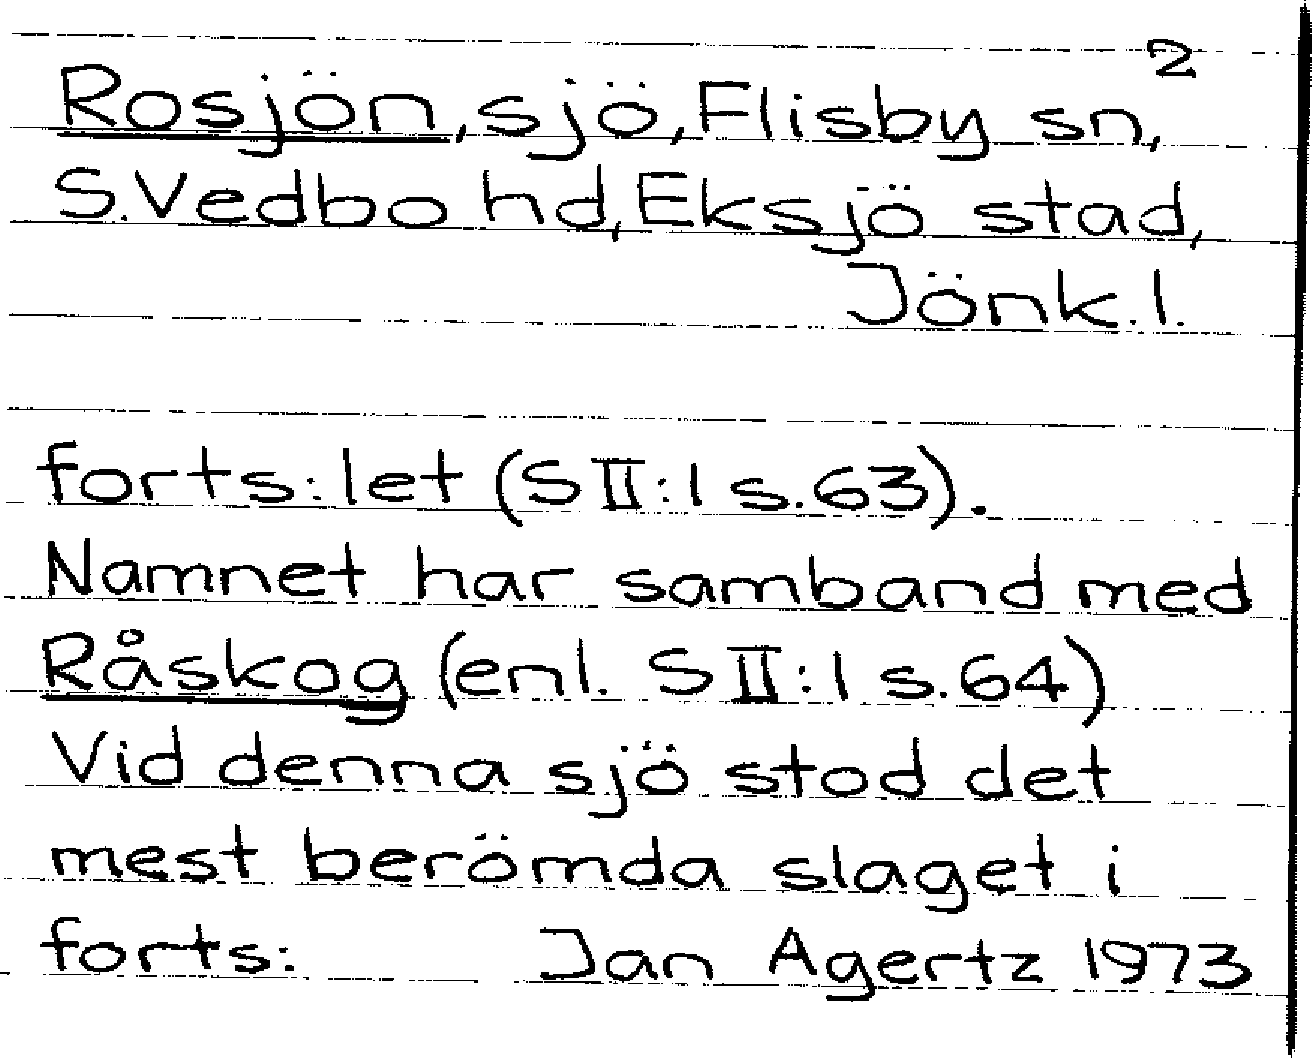 2
Rosjön, sjö, Flisby sn,
S.Vedbo hd, Eksjö stad,
Jönk.l.
forts: let (S II:1 s.63).
Namnet har samband med
Råskog (enl. S II:1 s.64)
Vid denna sjö stod det
mest berömda slaget i
forts: Jan Agertz 1973